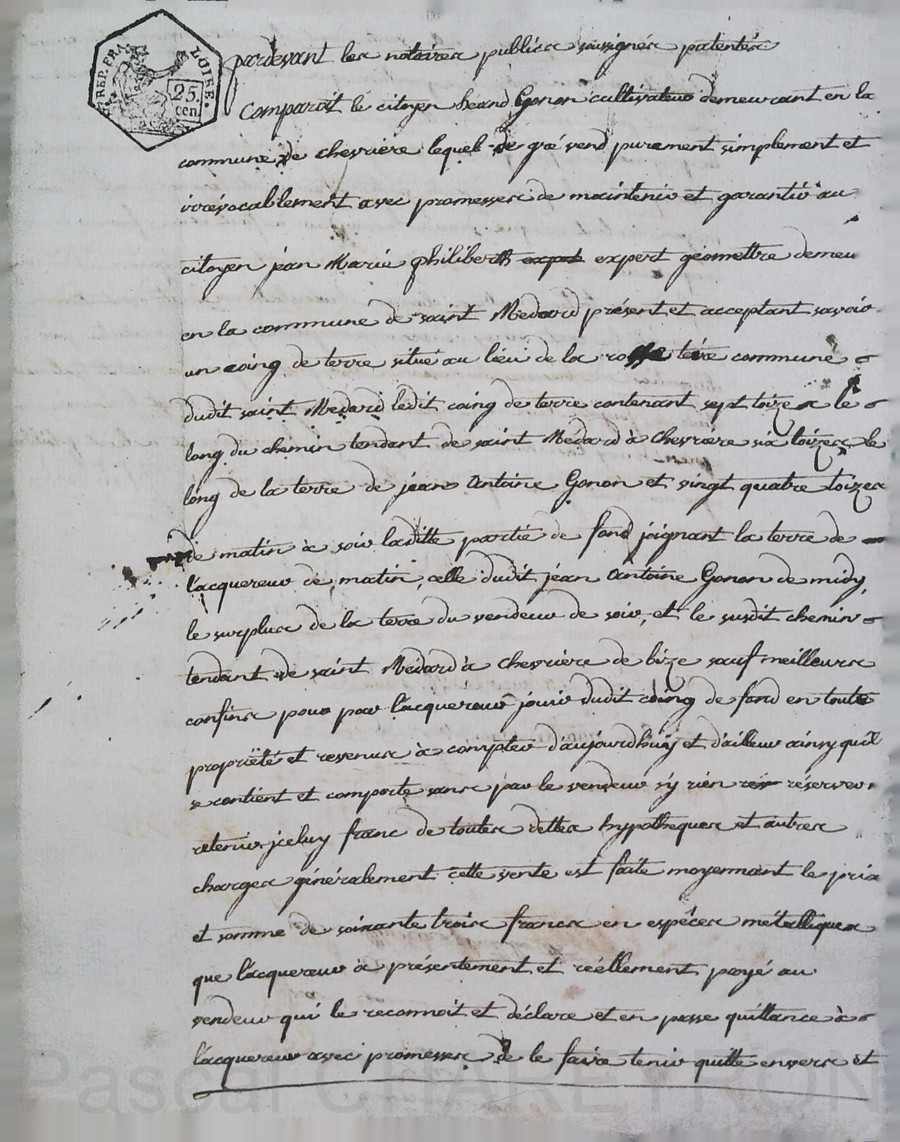 REP. FRA. LOIRE.
25.
cen
pardevant les notaires publics soussignés patentés
Comparoit le citoyen Gonon cultivateur demeurant en la
commune de chevriere lequel de gré vend purement simplement et
irrévocablement avec promesses de maintenir et garantir au
citoyen jean Marie philibert expert géomettre demeu
en la commune de saint Medard présent et acceptant savoir
un coing de terre situé au lieu de la terre commune
dudit saint Medard ledit coing de terre contenant sept toizes le
long du chemin tendant de saint Médard à Chevriere six toizes le
long de la terre de jean Antoine Gonon et vingt quatre toizes
de matin à soir laditte partie de fond joignant la terre de
l'acquereur de matin, celle dudit jean Antoine Gonon de midy,
le surplus de la terre du vendeur de soir, et le susdit chemin
tendant de saint Medard à Chevriere de bize sauf meilleurs
confins pour par l'acquereur jouir dudit coing de fond en toute
propriété et revenus à compter d'aujourdhuy et d'ailleur ainsy quil
se contient et comporte sans par le vendeur n'y rien réserver
retenir jceluy franc de toutes dettes hypotheques et autres
charges généralement cette vente est faite moyennant le prix
et somme de soixante trois francs en espéces métalliques
que l'acquereur à présentement et réellement payé au
vendeur qui le reconnoit et déclare et en passe quittance à
l'acquereur avec promesses de le faire tenir quitte envers et
Pascal CHAREYRON